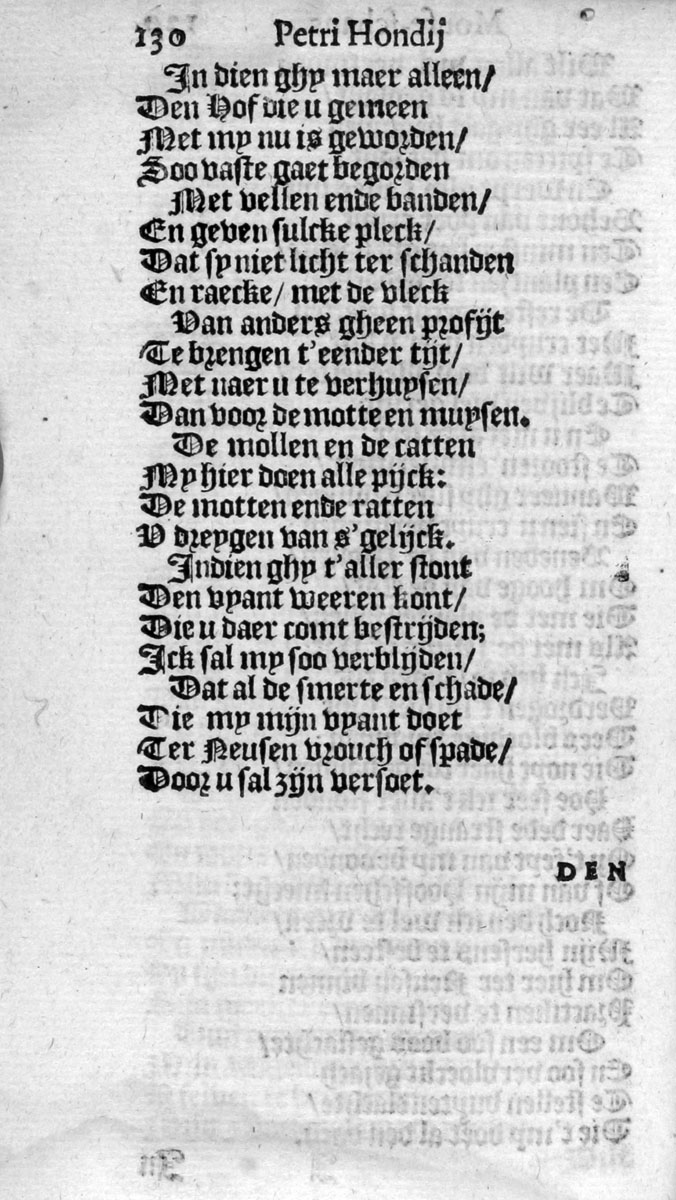 130 Petri Hondij
In dien ghy maer alleen/
Den Hof die u gemeen
Met my nu is geworden/
Soo vaste gaet begorden
Met vellen ende banden/
En geven sulcke pleck/
Dat sy niet licht ter schanden
En raecke/ met de vleck
Van anders gheen profijt
Te brengen t'eender tijt/
Met naer u te verhuysen/
Dan voor de motte en muysen.
De mollen en de catten
My hier doen alle pijck:
De motten ende ratten
V dreygen van s'gelijck.
Indien ghy t'aller stont
Den vyant weeren kont/
Die u daer comt bestrijden;
Ick sal my soo verblijden/
Dat al de smerte en schade/
Die my mijn vyant doet
Ter Neusen vrouch of spade/
Door u sal zijn versoet.
DEN